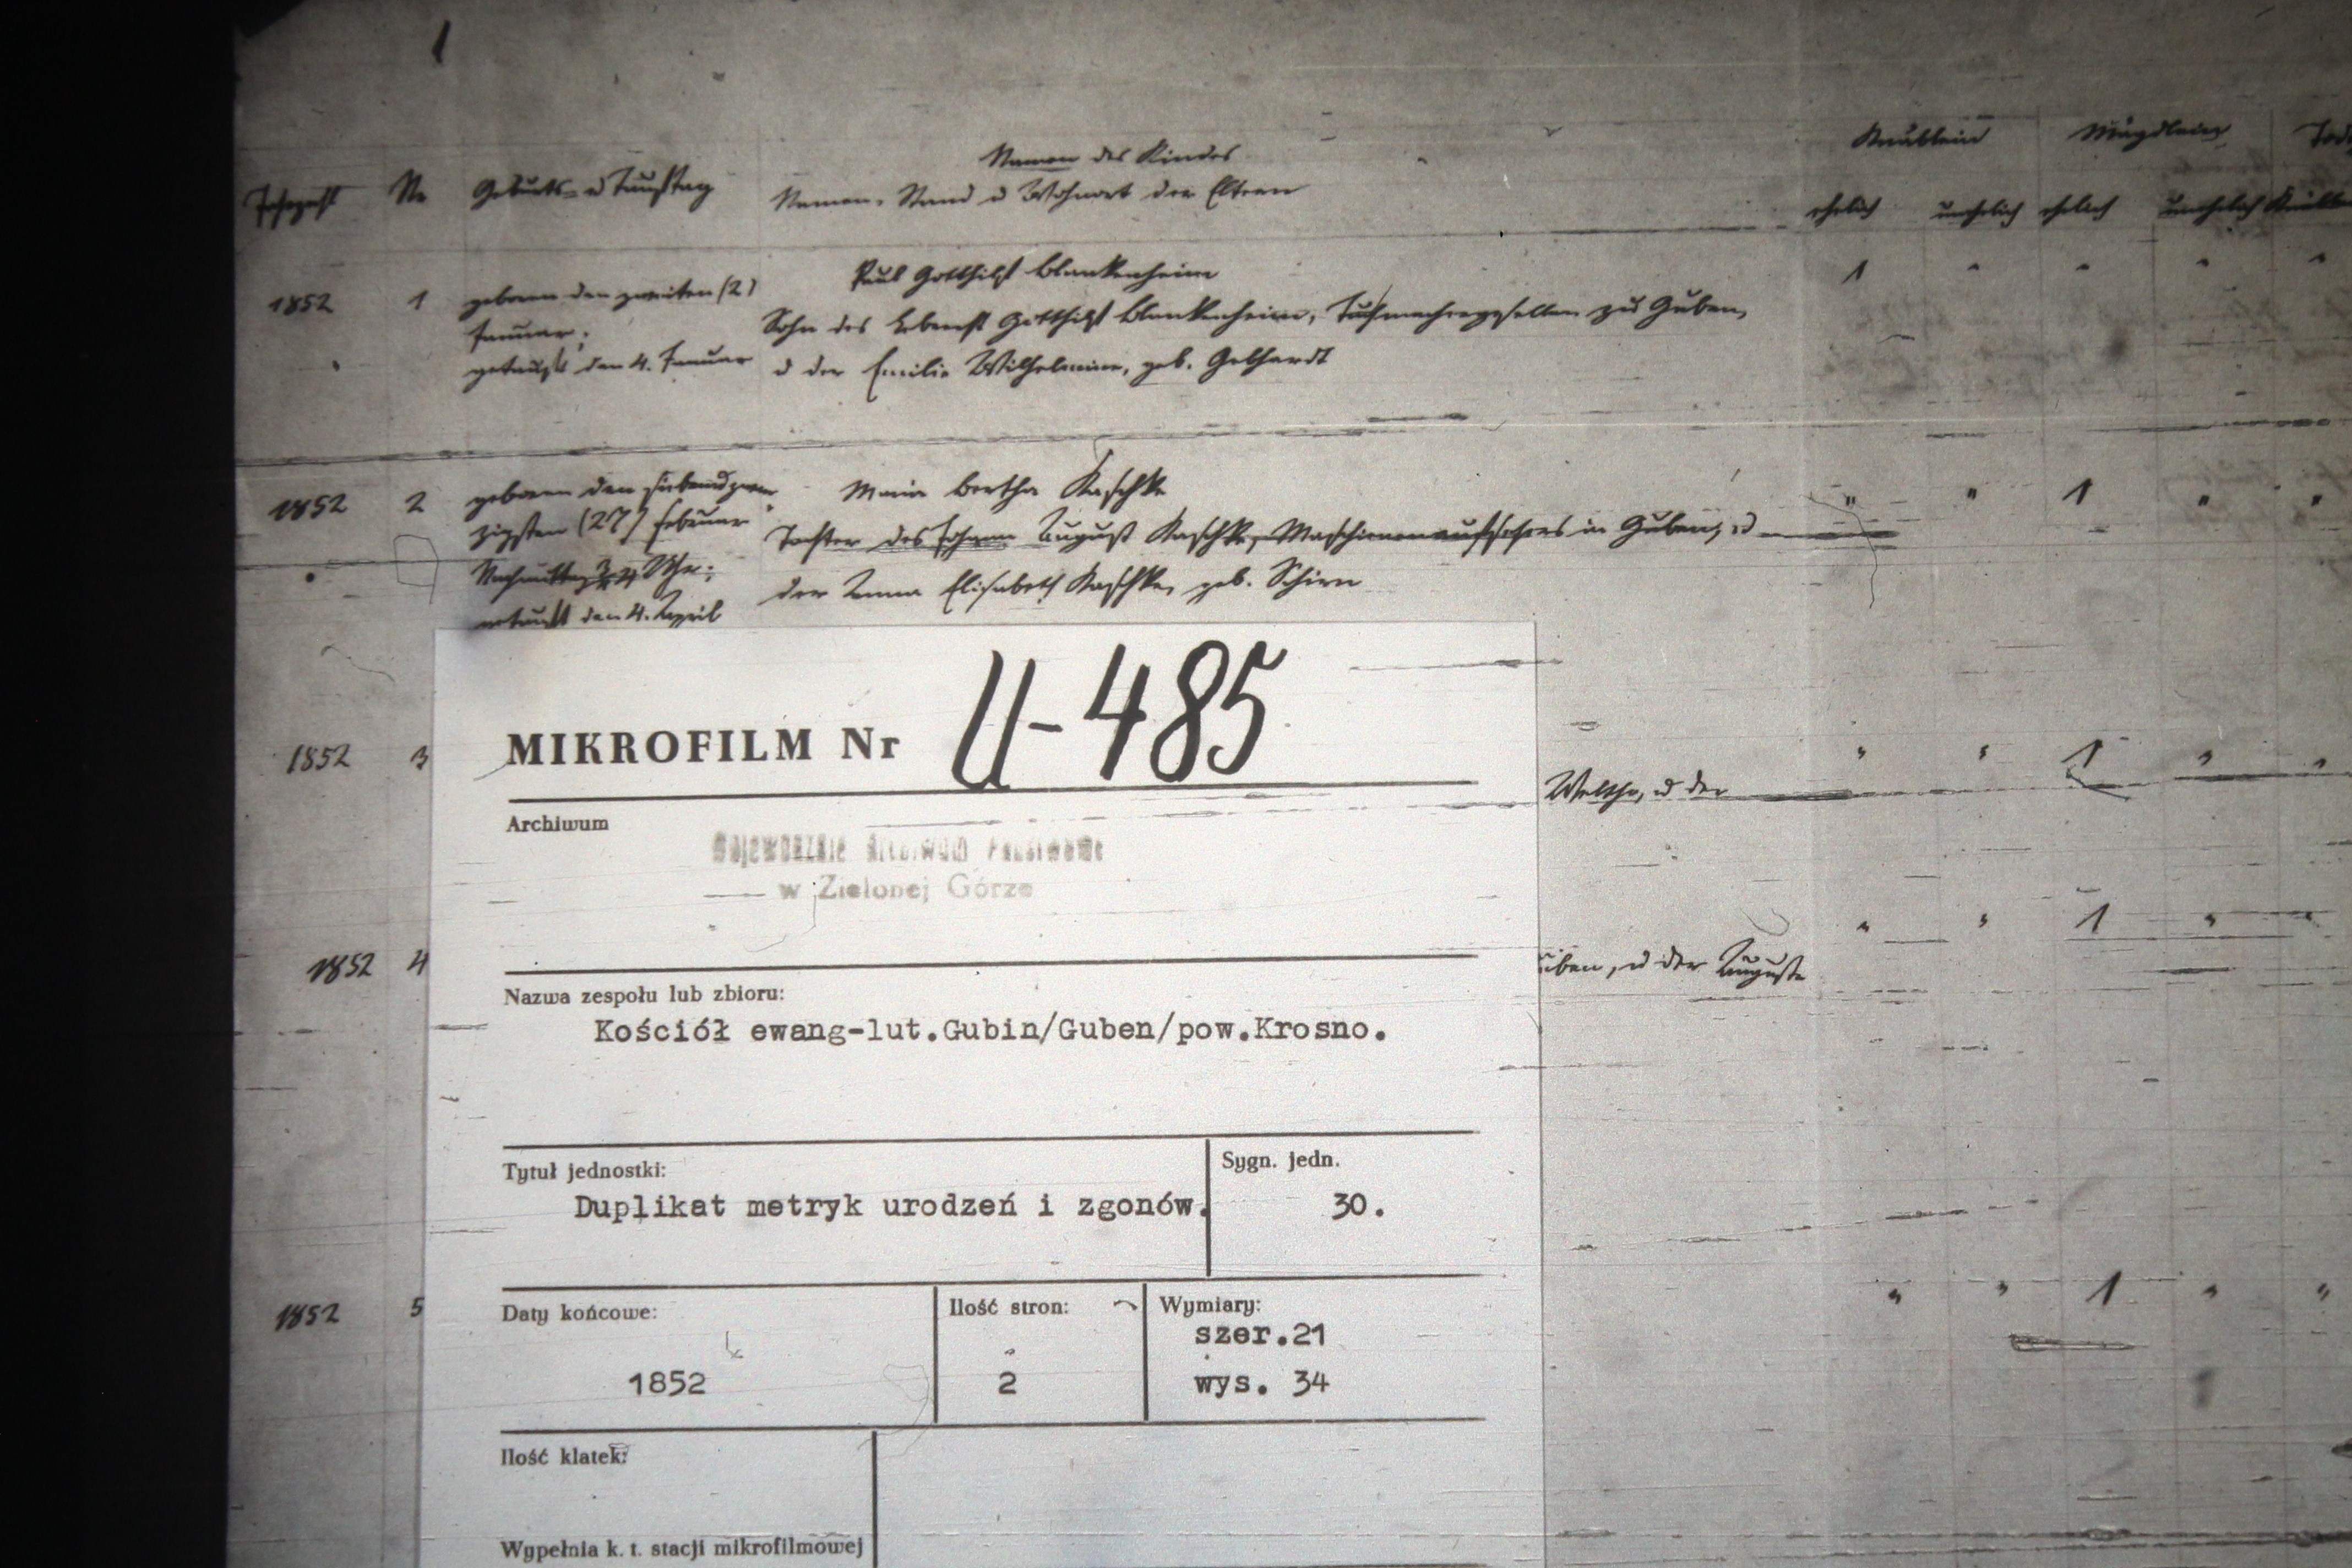 1
Namen des Kindes
Knäblein Mägdlein
Jahrzahl Nr Geburts- u Tauftag Namen, Stand u Wohnort der Eltern
ehelich unehelich ehelich unehelich
1852 1 geboren den zweiten (2) Paul Gotthilf Blankenheim 1 " " " "
Januar; Sohn des Leberecht Gotthilf Blankenheim, Tuchmachergesellen zu Guben,
getauft den 4. Januar u der Emilie Wilhelmine, geb. Gebhardt
1852 2 geboren den siebendzwan Maria Bertha Kaschke " " 1 " "
zigsten (27) Februar Tochter des Johann August Kaschke, Maschinenaufsehers in Guben, u
Nachmittag Uhr; der Anna Elisabeth Kaschke, geb. Schirn
getauft den 4. April
MIKROFILM Nr U-485
1852 3 " " 1 " "
Walthr, u der
Archiwum
Wojewódzkie Archiwum Państwowe
w Zielonej Górze
1852 4 " " 1 " "
uben, u der Auguste
Nazwa zespołu lub zbioru:
Kościół ewang-lut.Gubin/Guben/pow.Krosno.
Tytuł jednostki: Sygn. jedn.
Duplikat metryk urodzeń i zgonów. 30.
1852 5 " " 1 " "
Daty końcowe: Ilość stron: Wymiary:
szer.21
1852 2 wys. 34
Ilość klatek:
Wypełnia k. t. stacji mikrofilmowej